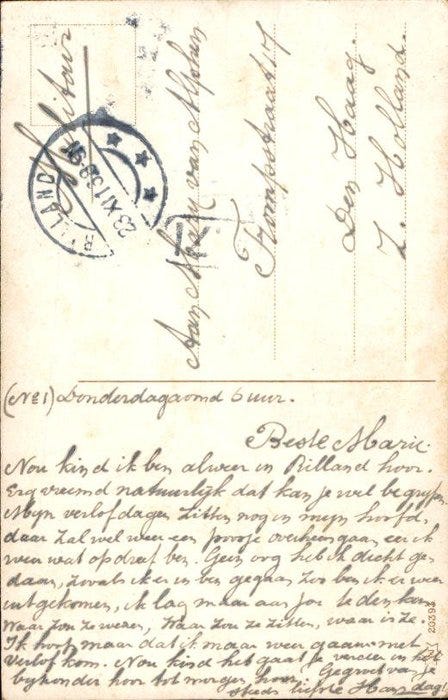 Militair
RILLAND
23 XI 13 8-9N
T
Aan Mej. M van Alphen
Trompstraat 17
Den Haag.
Z. Holland.
(No 1) Donderdagavond 6 uur.
Beste Marie.
Nou kind ik ben al weer in Rilland hoor.
Erg vreemd natuurlijk dat kan je wel begrijpen
Mijn verlofdagen zitten nog in mijn hoofd,
daar zal wel weer een poosje overheen gaan eer ik
weer wat op dreef ben. Geen oog heb ik dicht ge-
daan, zooals ik er in ben gegaan zoo ben ik er weer
uitgekomen, ik lag maar aan jou te denken
Waar zou ze wezen, Waar zou ze zitten, waar is ze.
Ik hoop maar dat ik maar weer gauw met
verlof kom. Nou kind het gaat je verder in het
bijzonder hoor tot morgen hoor. Gegroet van je
steeds liefste Hans dag